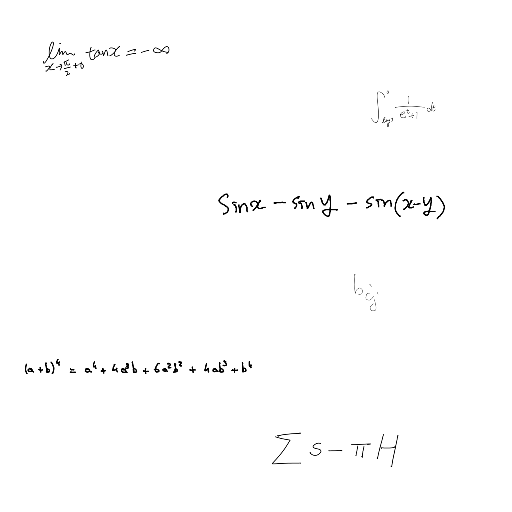 lim x→π/2+0 tan x = -∞
sin x - sin y - sin(x-y)
b_{ij}
(a+b)^4 = a^4 + 4a^3b + 6a^2b^2 + 4ab^3 + b^4
∑ s - π H